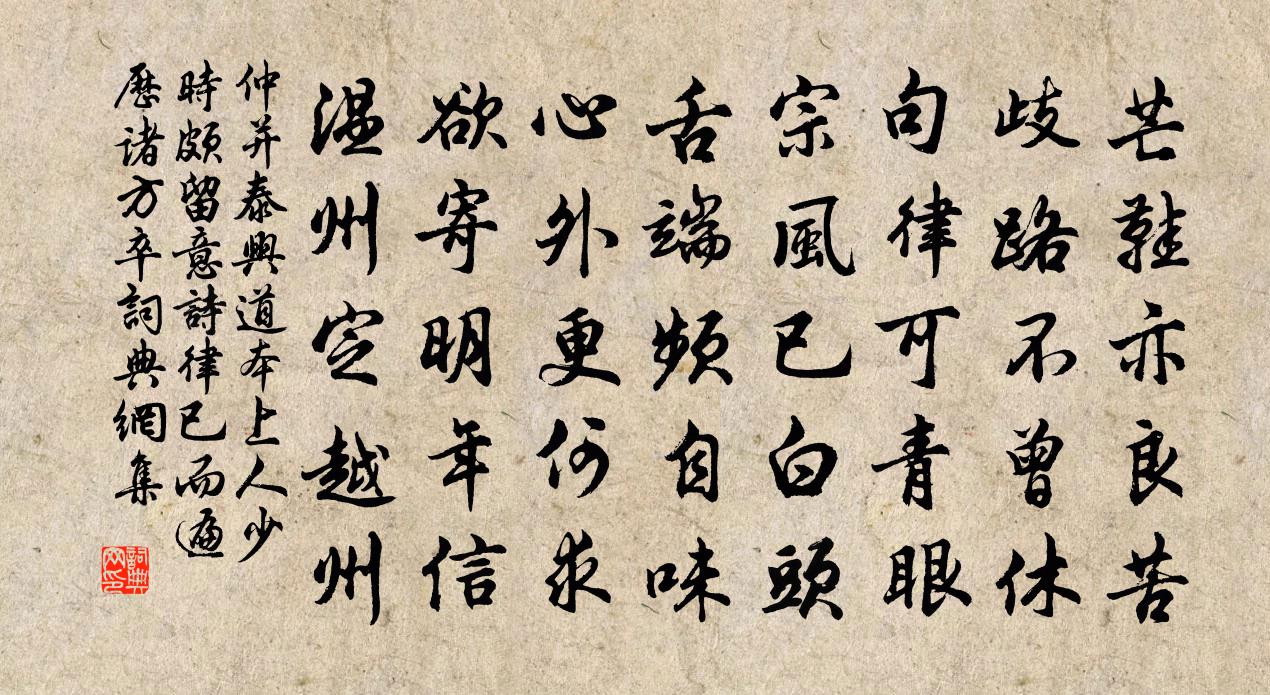 芒鞋亦良苦
歧路不曾休
句律可青眼
宗風已白頭
舌端頻自味
心外更何求
欲寄明年信
温州定越州
仲并泰興道本上人少
時頗留意詩律已而遍
歷諸方卒詞典網集
詞典网印